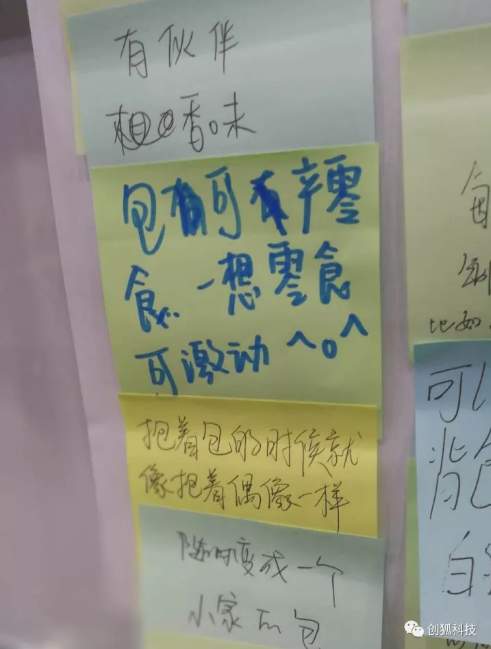 有伙伴
想口香味
包有可有辛零
食.一想零食
可激动^o^
抱着包的时候就
像抱着偶像一样
随时变成一个
小家的包
比如
可以
背包
自
创狐科技